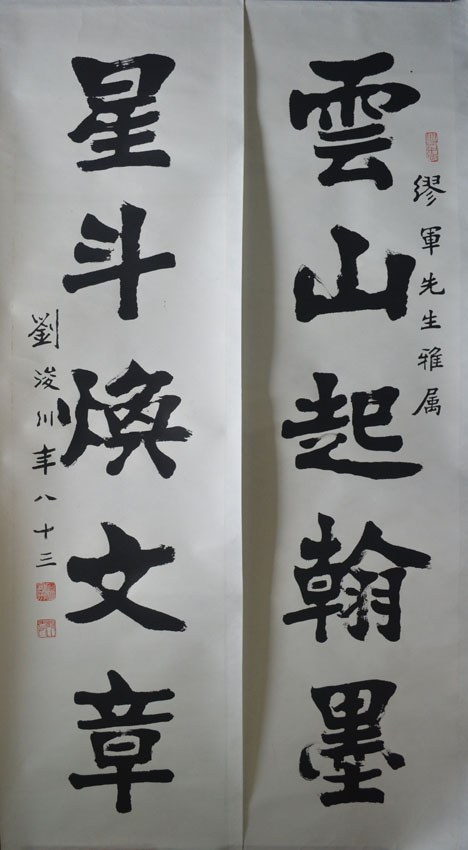 繆軍先生雅属
雲山起翰墨
星斗煥文章
劉浚川年八十三